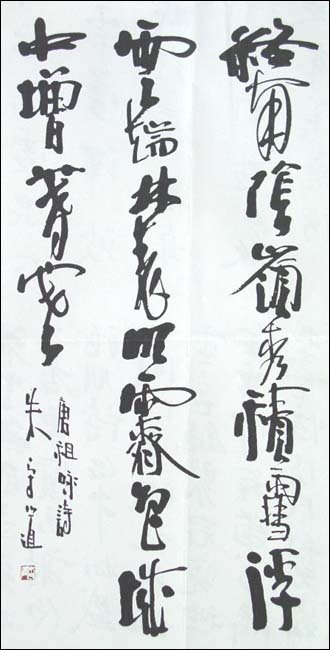 終南陰嶺秀積雪浮
雲端林表明霽色城
中增暮寒
唐祖咏詩
朱守道